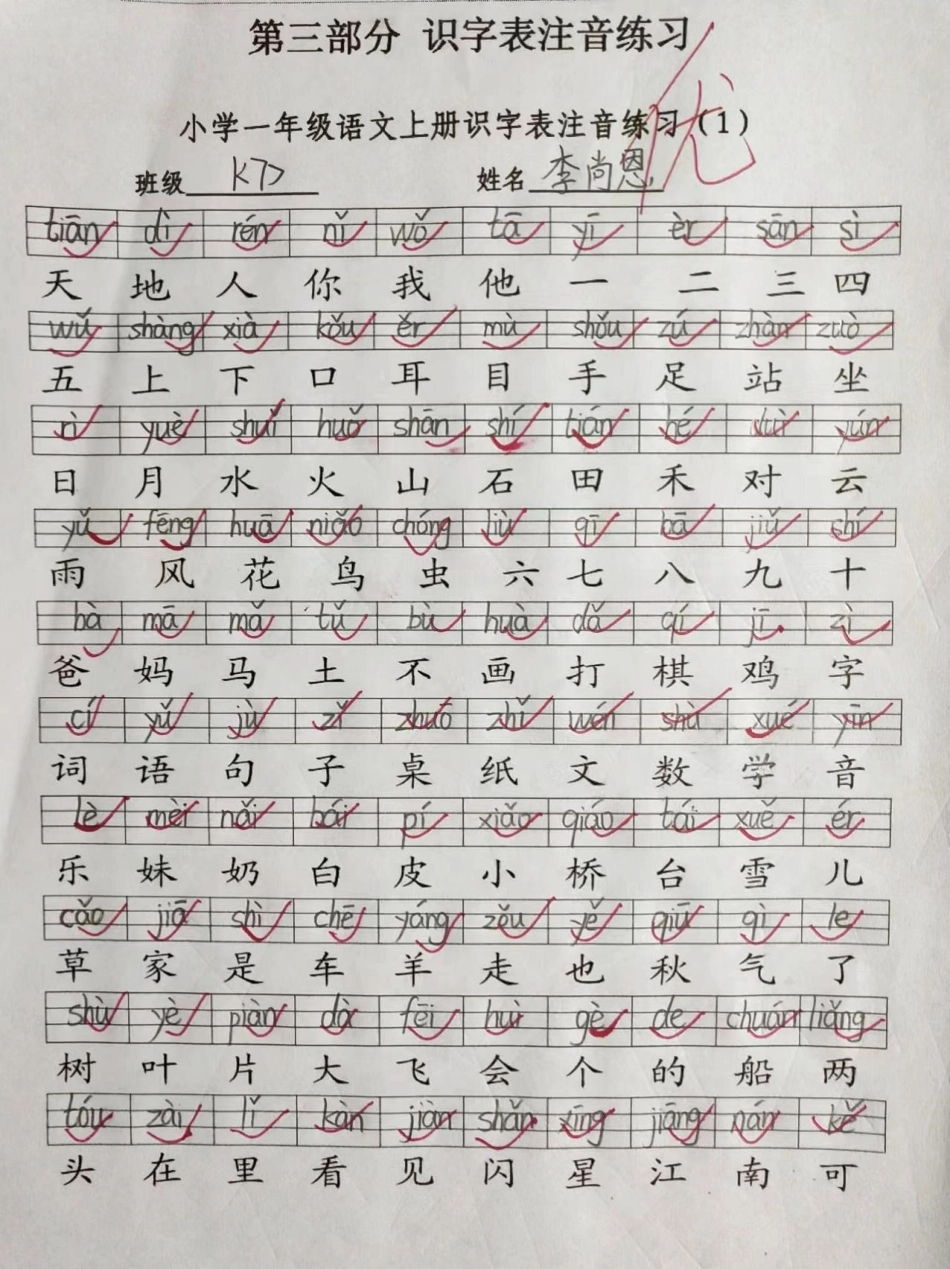 第三部分 识字表注音练习
小学一年级语文上册识字表注音练习（1）
优
班级 K7D 姓名 李尚恩
tiān dì rén nǐ wǒ tā yī èr sān sì
天 地 人 你 我 他 一 二 三 四
wǔ shàng xià kǒu ěr mù shǒu zú zhàn zuò
五 上 下 口 耳 目 手 足 站 坐
rì yuè shuǐ huǒ shān shí tián hé duì yún
日 月 水 火 山 石 田 禾 对 云
yǔ fēng huā niǎo chóng liù qī bā jiǔ shí
雨 风 花 鸟 虫 六 七 八 九 十
bà mā mǎ tǔ bù huà dǎ qí jī zì
爸 妈 马 土 不 画 打 棋 鸡 字
cí yǔ jù zǐ zhuō zhǐ wén shù xué yīn
词 语 句 子 桌 纸 文 数 学 音
lè mèi nǎi bái pí xiǎo qiáo tái xuě ér
乐 妹 奶 白 皮 小 桥 台 雪 儿
cǎo jiā shì chē yáng zǒu yě qiū qì le
草 家 是 车 羊 走 也 秋 气 了
shù yè piàn dà fēi huì gè de chuán liǎng
树 叶 片 大 飞 会 个 的 船 两
tóu zài lǐ kàn jiàn shǎn xīng jiāng nán kě
头 在 里 看 见 闪 星 江 南 可